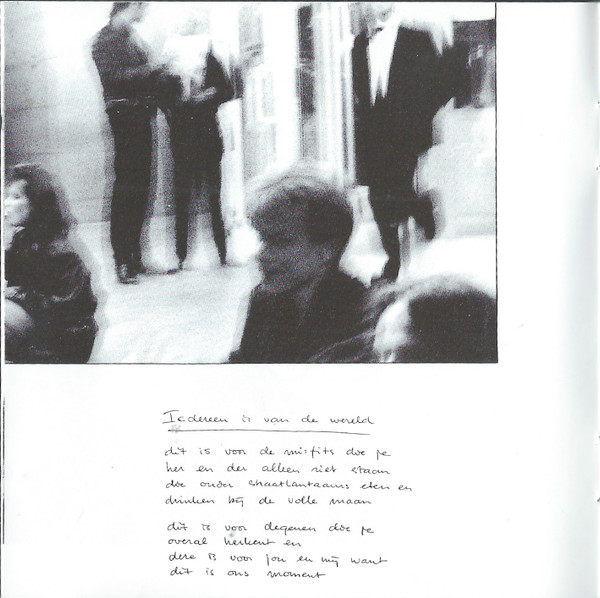 Iedereen is van de wereld
dit is voor de misfits die je
her en der alleen ziet staan
die onder straatlantaarns eten en
drinken bij de volle maan
dit is voor degenen die je
overal herkent en
deze is voor jou en mij want
dit is ons moment